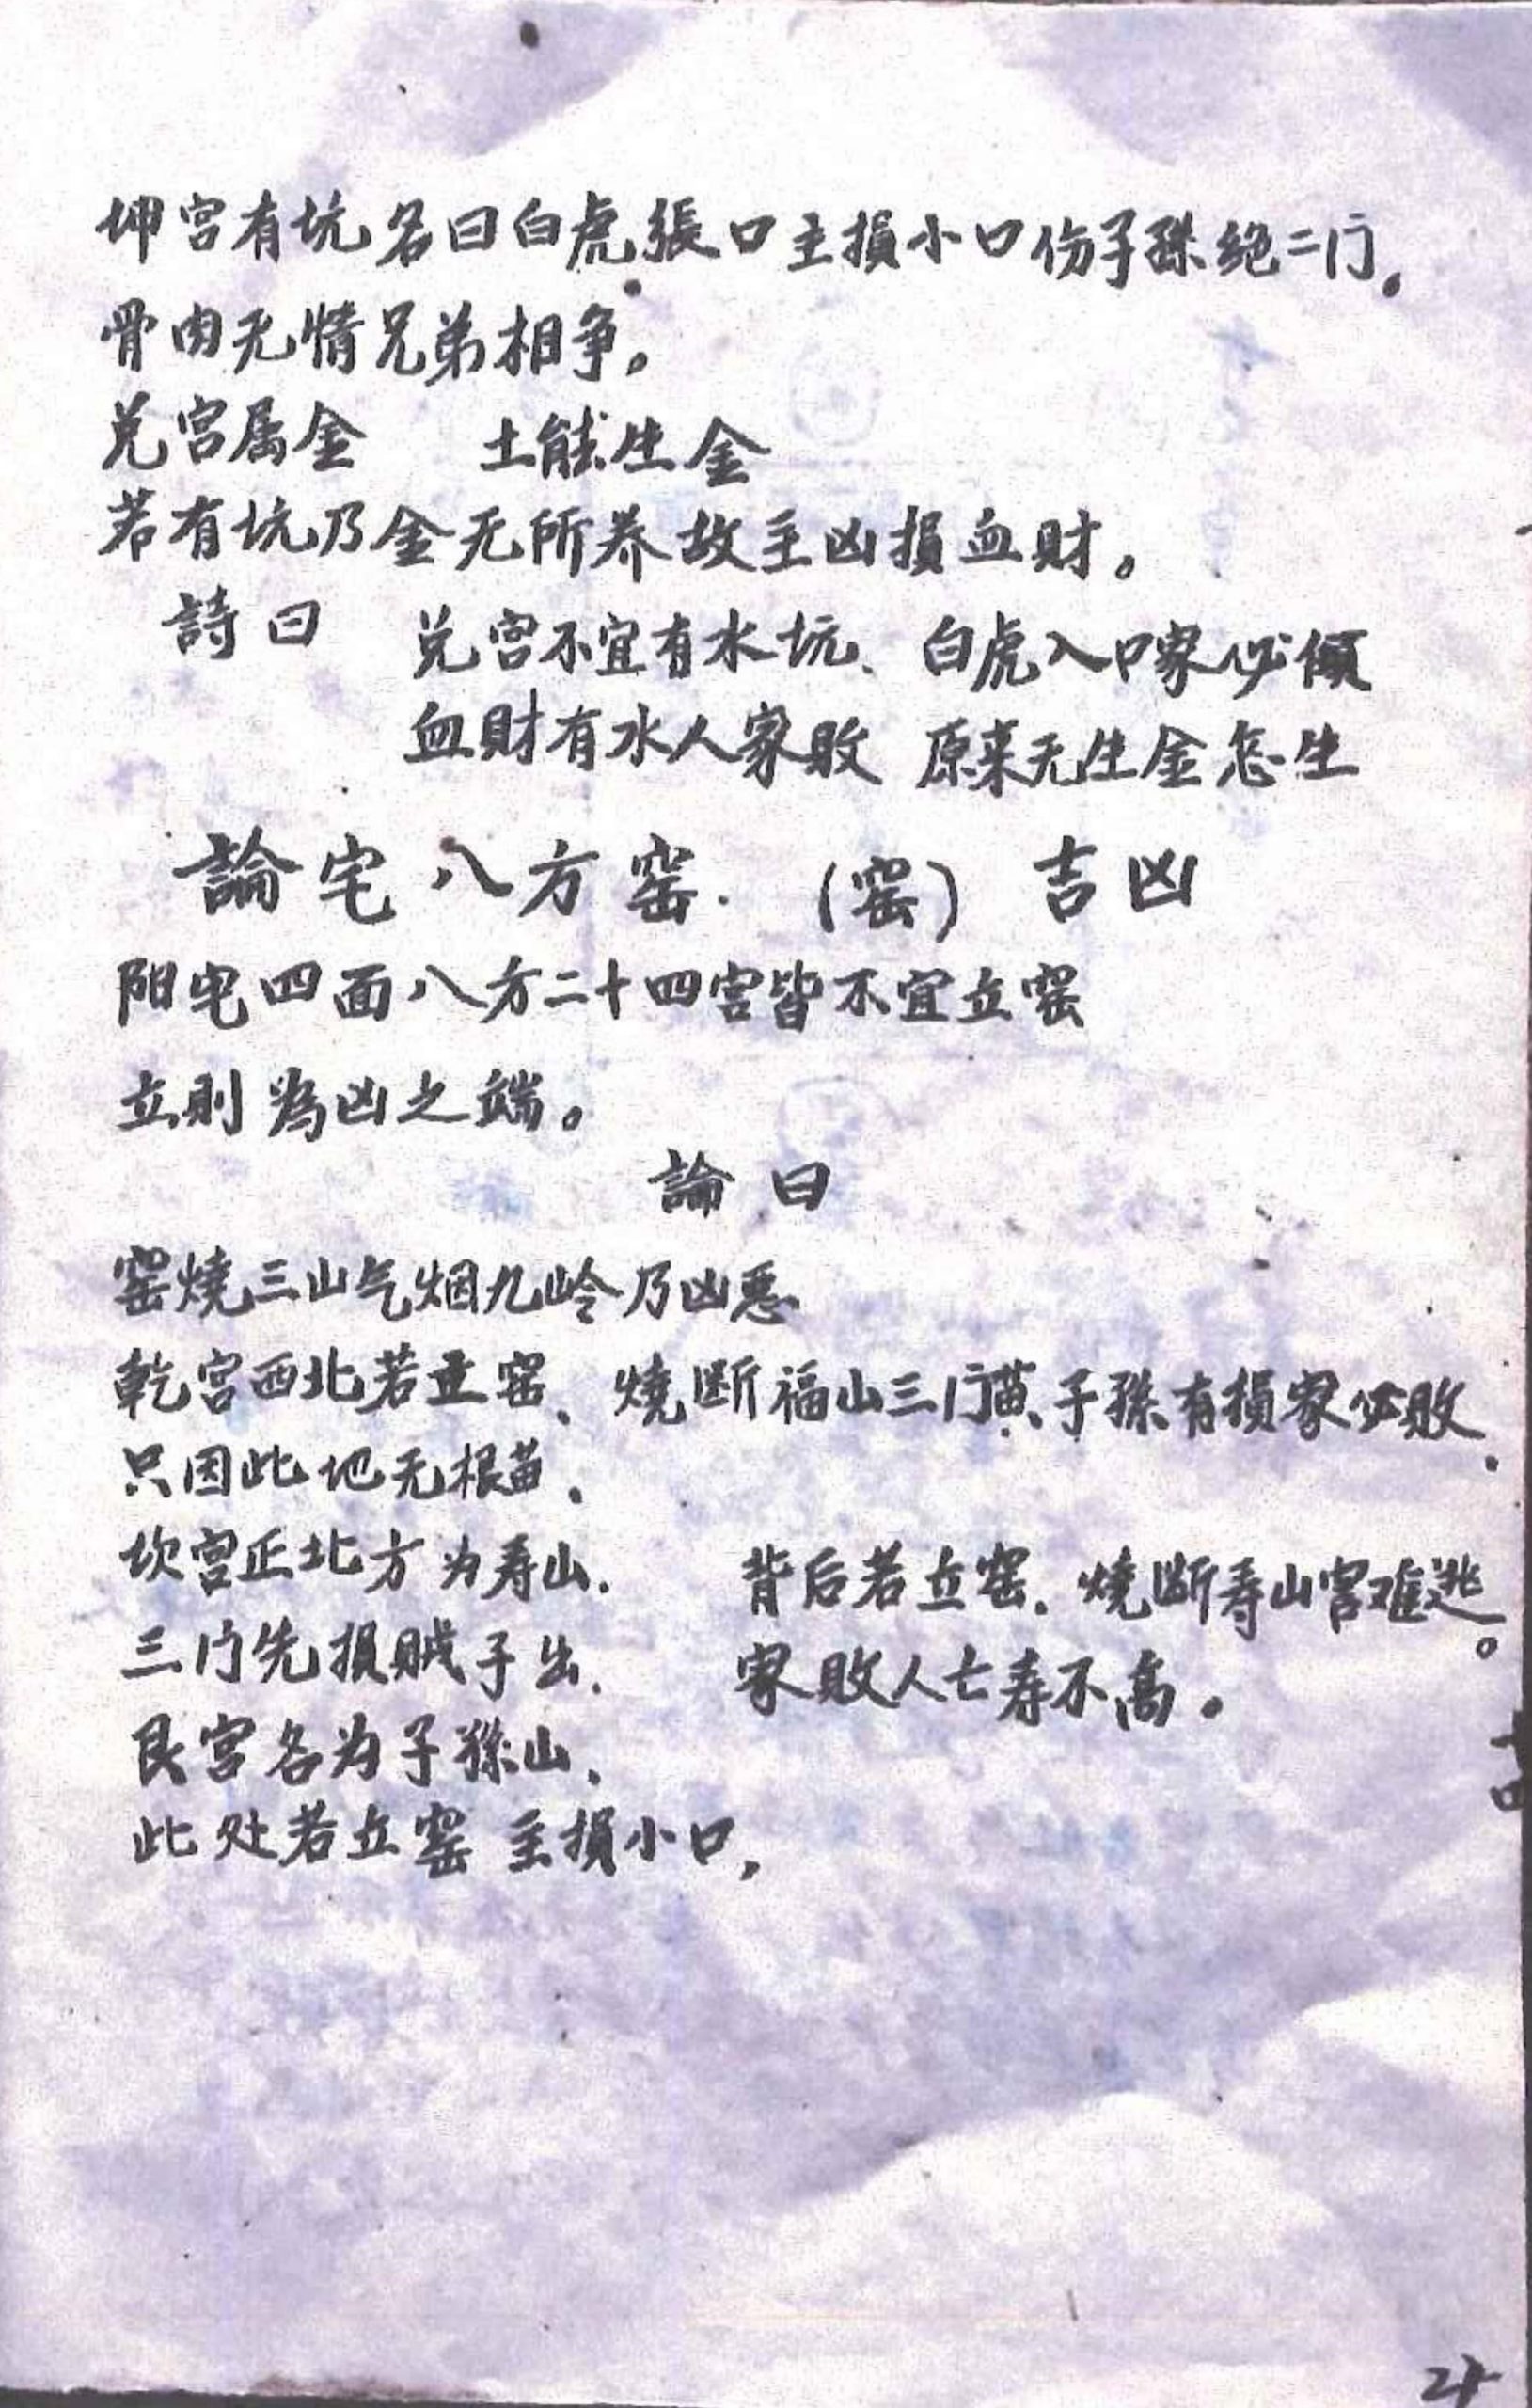 坤宫有坑名曰白虎張口主損小口伤子孫绝二门。
骨肉无情兄弟相争。
兑宫属金 土能生金
若有坑乃金无所养故主凶損血财。
詩曰 兑宫不宜有水坑、白虎入口家必傾
血财有水人家败 原来无生金怎生
論宅八方窑.(窑)吉凶
阳宅四面八方二十四宫皆不宜立窑
立則為凶之端。
論曰
窑燒三山气烟九岭乃凶恶
乾宫西北若立窑、燒断福山三门苗、子孫有損家必败.
只因此地无根苗.
坎宫正北方为寿山. 背后若立窑. 燒断寿山宫难逃。
三门先損賊子出. 家败人亡寿不高。
艮宫名为子孫山.
此处若立窑主損小口,